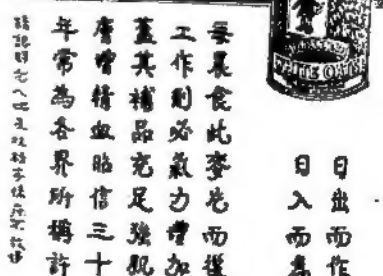 WHITE OATS
日出而作
日入而息
每晨食此麥皮而後
工作則必氣力增加
蓋其補品充足強肌
膚增精血昭信三十
年常為各界所稱許